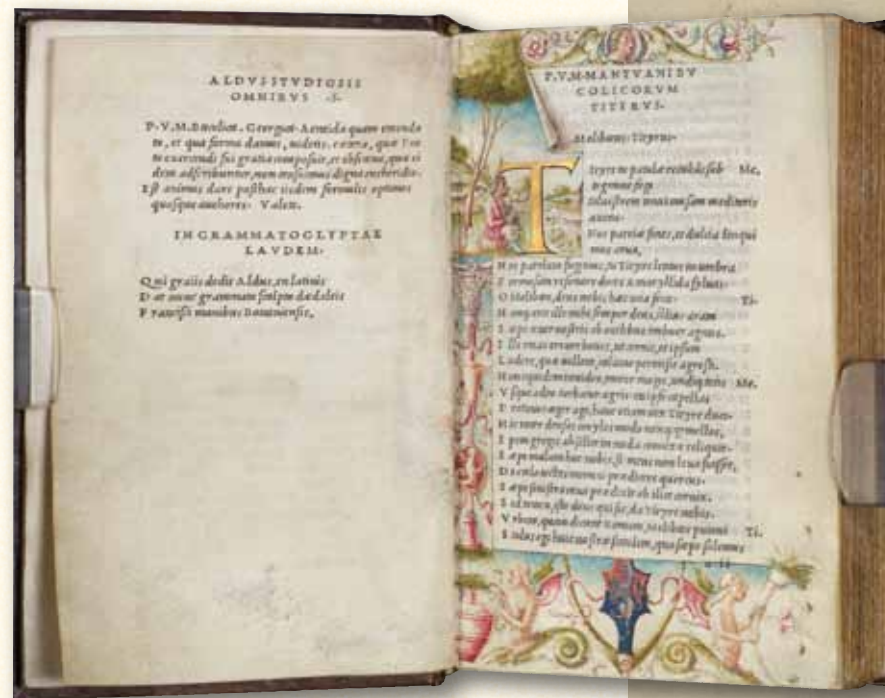 ALDVS STVDIOSIS
OMNIBVS .S.
P.V.M. Bucolica. Georgica. Aeneida quam emenda
ta, et qua forma damus, uidetis. caetera, quae Poe
ta exercendi sui gratia composuit, et obscena, quae ei
dem adscribuntur, non censuimus digna enchiridio.
Est animus dare posthac iisdem formulis optimos
quosque authores. Valete.
IN GRAMMATOGLYPTAE
LAVDEM.
Qui graiis dedit Aldus, en latinis
Dat nunc grammata scalpta daedaleis
Francisci manibus Bononiensis.
P.V.M. MANTVANI BV
COLICORVM
TITYRVS.
Meliboeus. Tityrus.
Tityre tu patulae recubás sub Me.
tegmine fagi
Siluestrem tenui musam meditaris
auena.
Nos patriae fines, et dulcia linqui
mus arua,
Nos patriam fugimus, tu Tityre lentus in umbra
Formosam resonare doces amaryllida syluas.
O Meliboee, deus nobis haec otia fecit. Ti.
Nanq; erit ille mihi semper deus, illius aram
Saepe tener nostris ab ouilibus imbuet agnus.
Ille meas errare boues, ut cernis, et ipsum
Ludere, quae uellem, calamo permisit agresti.
Non equidem inuideo, miror magis, undiq; totis Me.
Vsque adeo turbatur agris. en ipse capellas
Protenus aeger ago, hanc etiam uix Tityre duco.
Hic inter densas corylos modo nanq; gemellos,
Spem gregis ah silice in nuda connixa reliquit.
Saepe malum hoc nobis, si mens non laeua fuisset,
De coelo tactas memini praedicere quercus.
Saepe sinistra caua praedixit ab ilice cornix.
Sed tamen, iste deus qui sit, da Tityre nobis.
Vrbem, quam dicunt Romam, Meliboee putaui Ti.
Stultus ego huic nostrae similem, quo saepe solemus
a ii